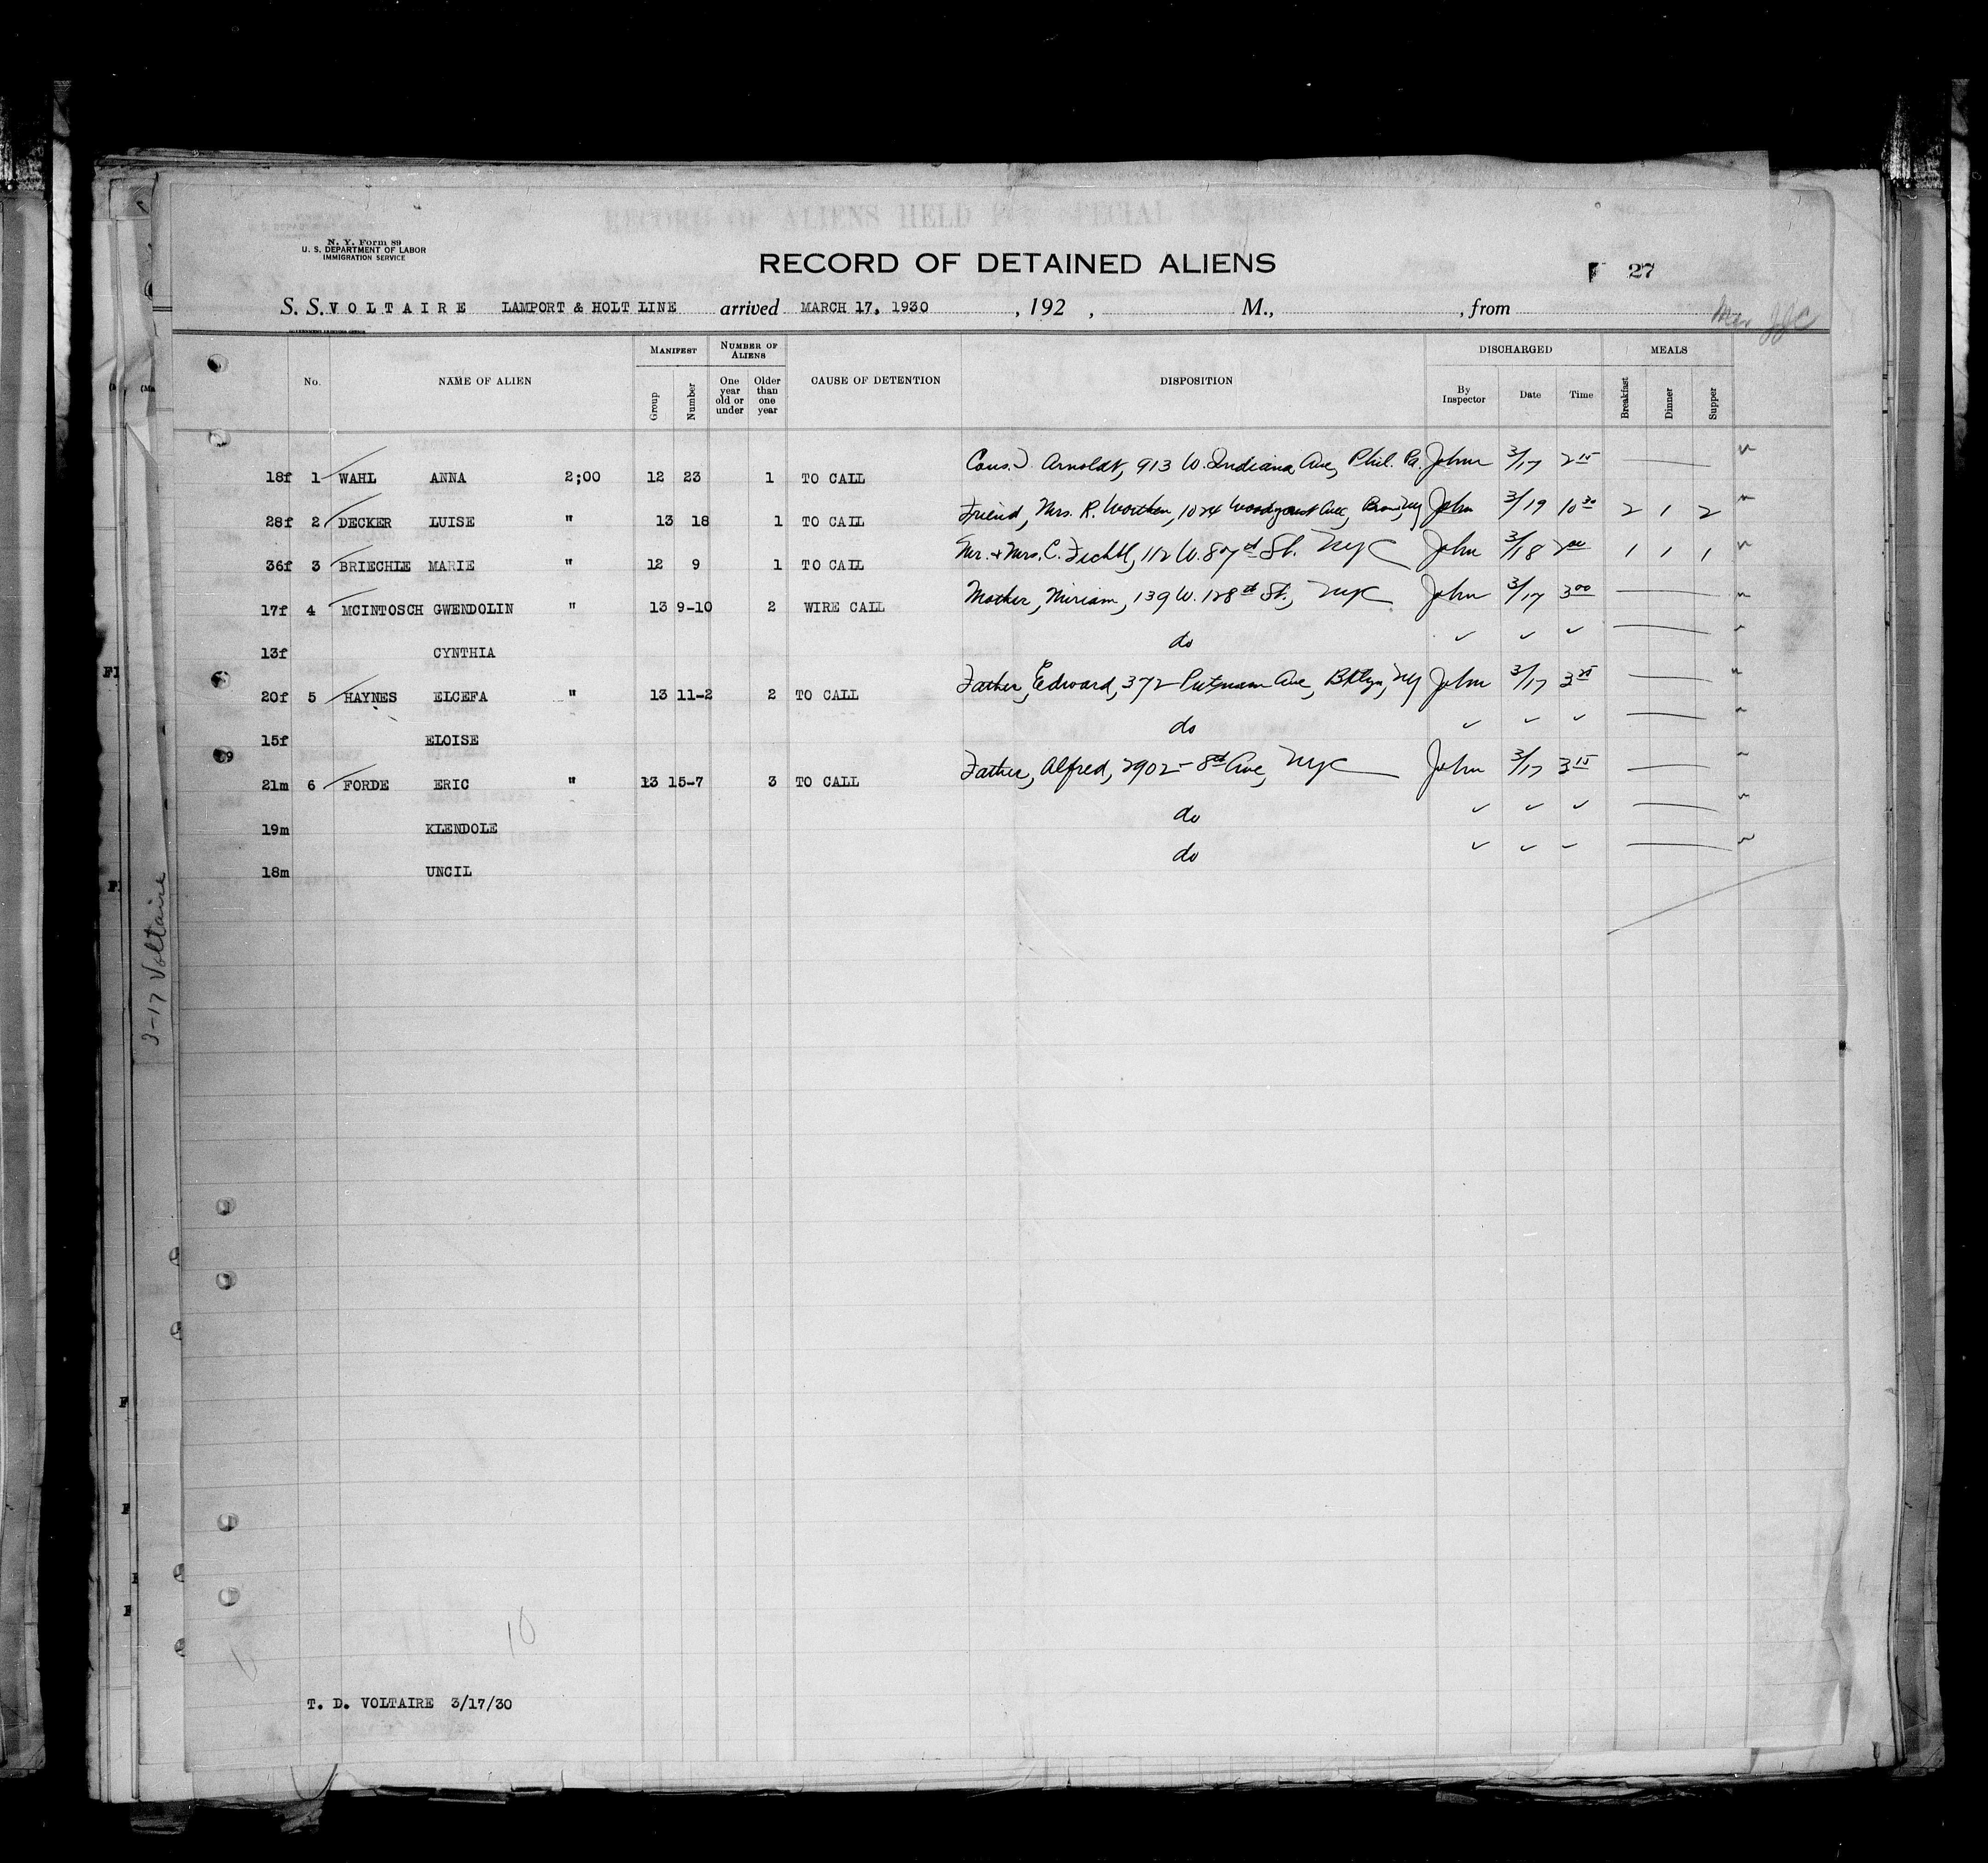 RECORD OF ALIENS HELD FOR SPECIAL INQUIRY
N. Y. Form 89
U. S. DEPARTMENT OF LABOR
IMMIGRATION SERVICE
RECORD OF DETAINED ALIENS
27
S. S. VOLTAIRE LAMPORT & HOLT LINE arrived MARCH 17, 1930 , 192 , M., , from
No. NAME OF ALIEN MANIFEST Group Number NUMBER OF ALIENS One year old or under Older than one year CAUSE OF DETENTION DISPOSITION DISCHARGED By Inspector Date Time MEALS Breakfast Dinner Supper
18f 1 WAHL ANNA 2;00 12 23 1 TO CALL Cous. J. Arnoldt, 913 W. Indiana Ave, Phil. Pa. John 3/17 2 15
28f 2 DECKER LUISE " 13 18 1 TO CALL Friend, Mrs. R. 1024 Ave, NY John 3/19 10 30 2 1 2
36f 3 BRIECHLE MARIE " 12 9 1 TO CALL Mr. & Mrs. C. Fichtl, 112 W. 87th St. NYC John 3/18 2 00 1 1 1
17f 4 MCINTOSCH GWENDOLIN " 13 9-10 2 WIRE CALL Mother, Miriam, 139 W. 128th St., NYC John 3/17 3 00
13f CYNTHIA do ✓ ✓ ✓
20f 5 HAYNES ELCEFA " 13 11-2 2 TO CALL Father, Edward, 372 Putnam Ave, Bklyn, NY John 3/17 3
15f ELOISE do ✓ ✓ ✓
21m 6 FORDE ERIC " 13 15-7 3 TO CALL Father, Alfred, 2902 - 8th Ave, NYC John 3/17 3 15
19m KLENDOLE do ✓ ✓ ✓
18m UNCIL do ✓ ✓ ✓
3-17 Voltaire
10
T. D. VOLTAIRE 3/17/30